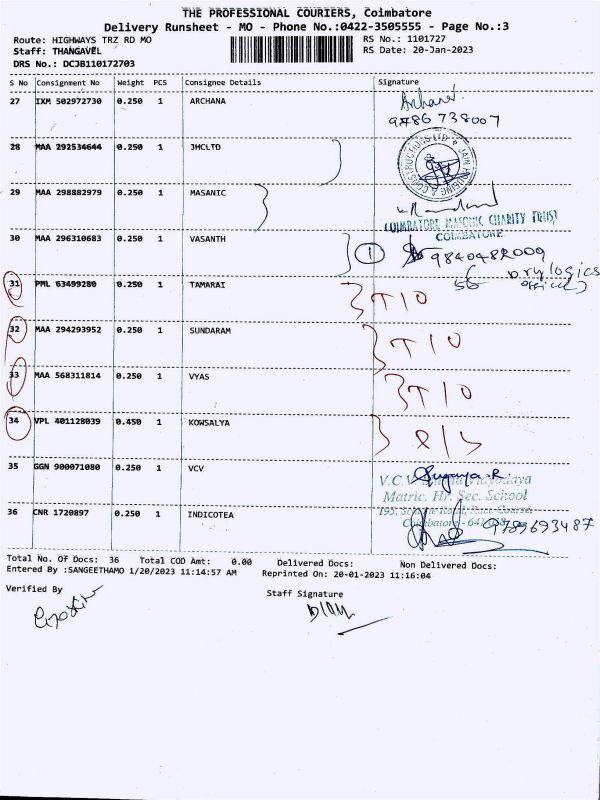 THE PROFESSIONAL COURIERS, Coimbatore
Delivery Runsheet - MO - Phone No.:0422-3505555 - Page No.:3
Route: HIGHWAYS TRZ RD MO
RS No.: 1101727
Staff: THANGAVEL
RS Date: 20-Jan-2023
DRS No.: DCJB110172703
S No Consignment No Weight PCS Consignee Details Signature
27 IXM 502972730 0.250 1 ARCHANA
9786 738007
28 MAA 292534644 0.250 1 JMCLTD
29 MAA 298882979 0.250 1 MASANIC
COIMBATORE MASONIC CHARITY TRUST
COIMBATORE
30 MAA 296310683 0.250 1 VASANTH
1 9840482009
Drylogics
office
31 PML 63499280 0.250 1 TAMARAI
32 MAA 294293952 0.250 1 SUNDARAM
33 MAA 568311814 0.250 1 VYAS
34 VPL 401128039 0.450 1 KOWSALYA
35 GGN 900071080 0.250 1 VCV
V.C.V.
Matric. Hr. Sec. School
36 CNR 1720897 0.250 1 INDICOTEA
9789693487
Total No. Of Docs: 36 Total COD Amt: 0.00 Delivered Docs: Non Delivered Docs:
Entered By :SANGEETHAMO 1/20/2023 11:14:57 AM Reprinted On: 20-01-2023 11:16:04
Verified By
Staff Signature